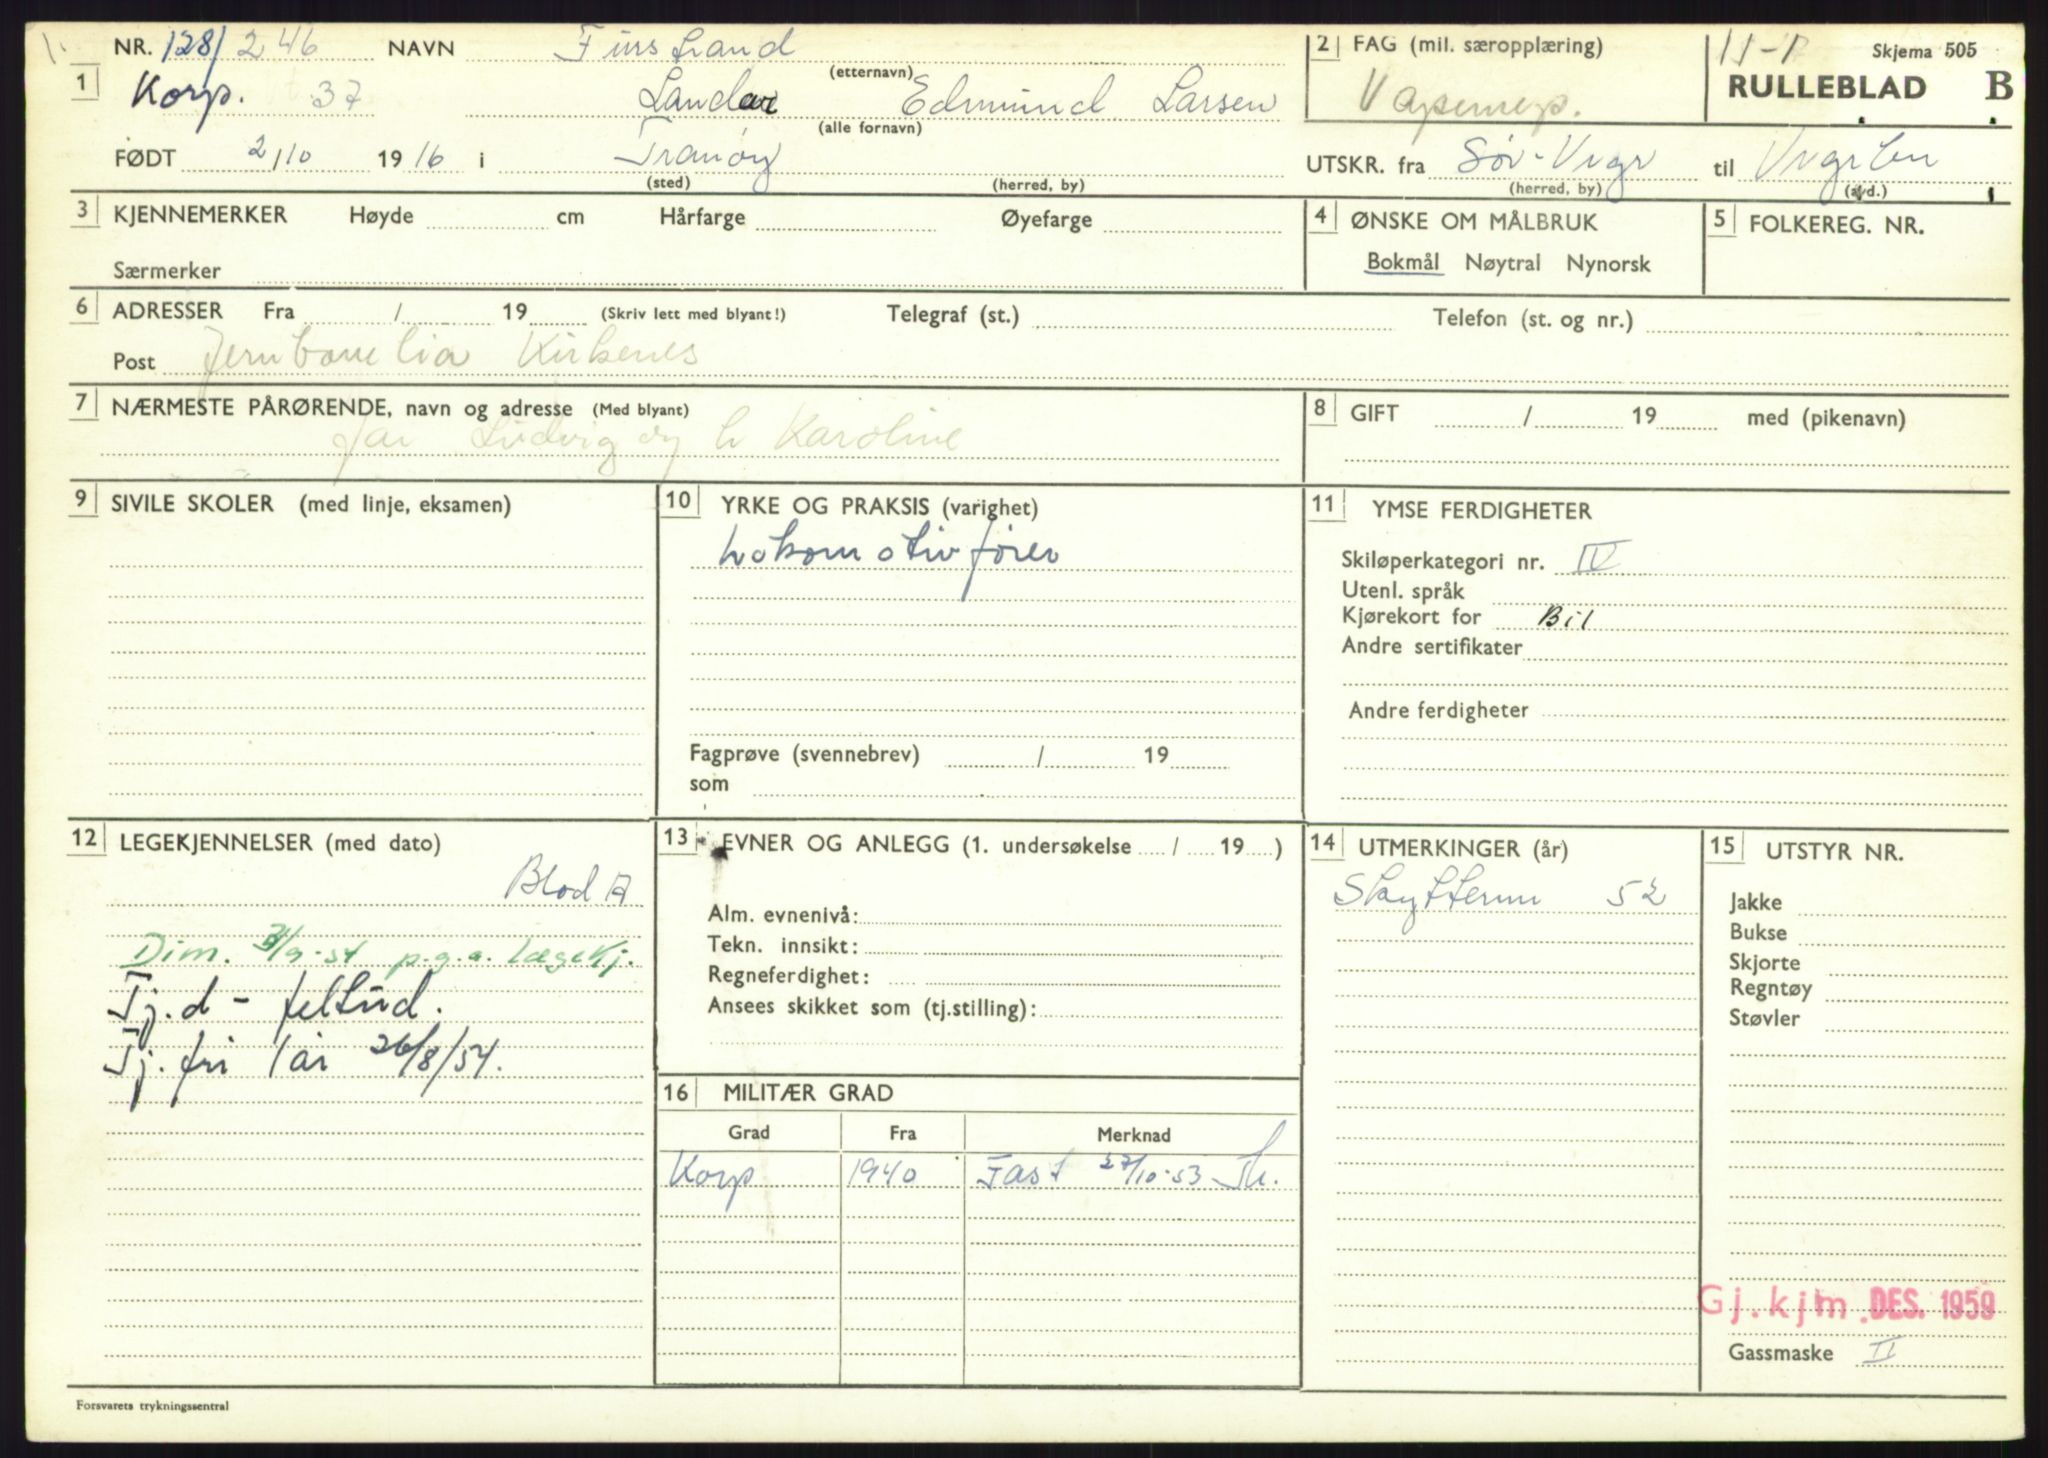 NR. 128/246 NAVN Furstrand 2 FAG (mil. særopplæring) Skjema 505
1 Korp. 37 (etternavn) Vapenrep. RULLEBLAD B
Landar Edmund Larsen
(alle fornavn)
FØDT 2/10 1916 i Tranøy UTSKR. fra Sør-Vrgr til Vrgrbn
(sted) (herred, by) (herred, by) (avd.)
3 KJENNEMERKER Høyde cm Hårfarge Øyefarge 4 ØNSKE OM MÅLBRUK 5 FOLKEREG. NR.
Særmerker Bokmål Nøytral Nynorsk
6 ADRESSER Fra / 19 (Skriv lett med blyant!) Telegraf (st.) Telefon (st. og nr.)
Post Jernbanelia Kirkenes
7 NÆRMESTE PÅRØRENDE, navn og adresse (Med blyant) 8 GIFT / 19 med (pikenavn)
Far Ludvig og h Karoline
9 SIVILE SKOLER (med linje, eksamen) 10 YRKE OG PRAKSIS (varighet) 11 YMSE FERDIGHETER
Lokomotivfører
Skiløperkategori nr. IV
Utenl. språk
Kjørekort for Bil
Andre sertifikater
Andre ferdigheter
Fagprøve (svennebrev) / 19
som
12 LEGEKJENNELSER (med dato) 13 EVNER OG ANLEGG (1. undersøkelse / 19 ) 14 UTMERKINGER (år) 15 UTSTYR NR.
Blod A
Dim. 3/9-54 p.g.a. Lægekj.
Tj.d - feltud.
Tj. fri 1 år 26/8/54.
Alm. evnenivå:
Tekn. innsikt:
Regneferdighet:
Ansees skikket som (tj.stilling):
Skytterm 52
Jakke
Bukse
Skjorte
Regntøy
Støvler
16 MILITÆR GRAD
Grad Fra Merknad
Korp 1940 Fast 27/10-53
Gj.kjm. DES. 1959
Gassmaske II
Forsvarets trykningssentral